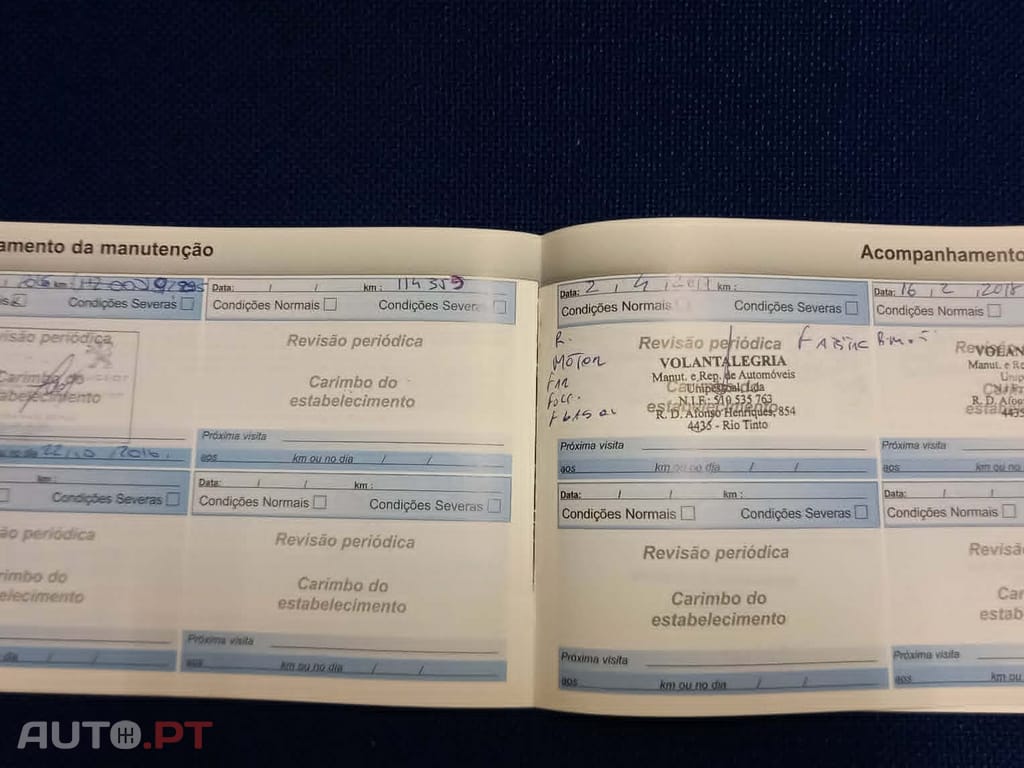 amento da manutenção
km :
Data: / / km : 114 359
Condições Severas
Condições Normais
Condições Severas
Revisão periódica
Carimbo do
estabelecimento
Revisão periódica
Carimbo do
estabelecimento
Próxima visita
aos km ou no dia / /
22/10/2016
km :
Condições Severas
Data: / / km :
Condições Normais
Condições Severas
são periódica
rimbo do
elecimento
Revisão periódica
Carimbo do
estabelecimento
Próxima visita
dia / /
aos km ou no dia / /
Acompanhamento
Data: 2 / 4 / km :
Condições Normais
Condições Severas
Data: 16 / 2 / 2018
Condições Normais
R.
MOTOR
Revisão periódica
VOLANTALEGRIA
Manut. e Rep. de Automóveis
Unipessoal, Lda
N.I.F.: 510 535 763
R. D. Afonso Henriques, 854
4435 - Rio Tinto
VOLAN
Manut. e R
Unip
R. D. Afon
4435
Próxima visita
aos km ou no dia / /
Próxima visita
aos km ou no
Data: / / km :
Condições Normais
Condições Severas
Data: / /
Condições Normais
Revisão periódica
Carimbo do
estabelecimento
Revisã
Car
estab
Próxima visita
aos km ou no dia / /
Próxima visita
aos km ou n
AUTO.PT